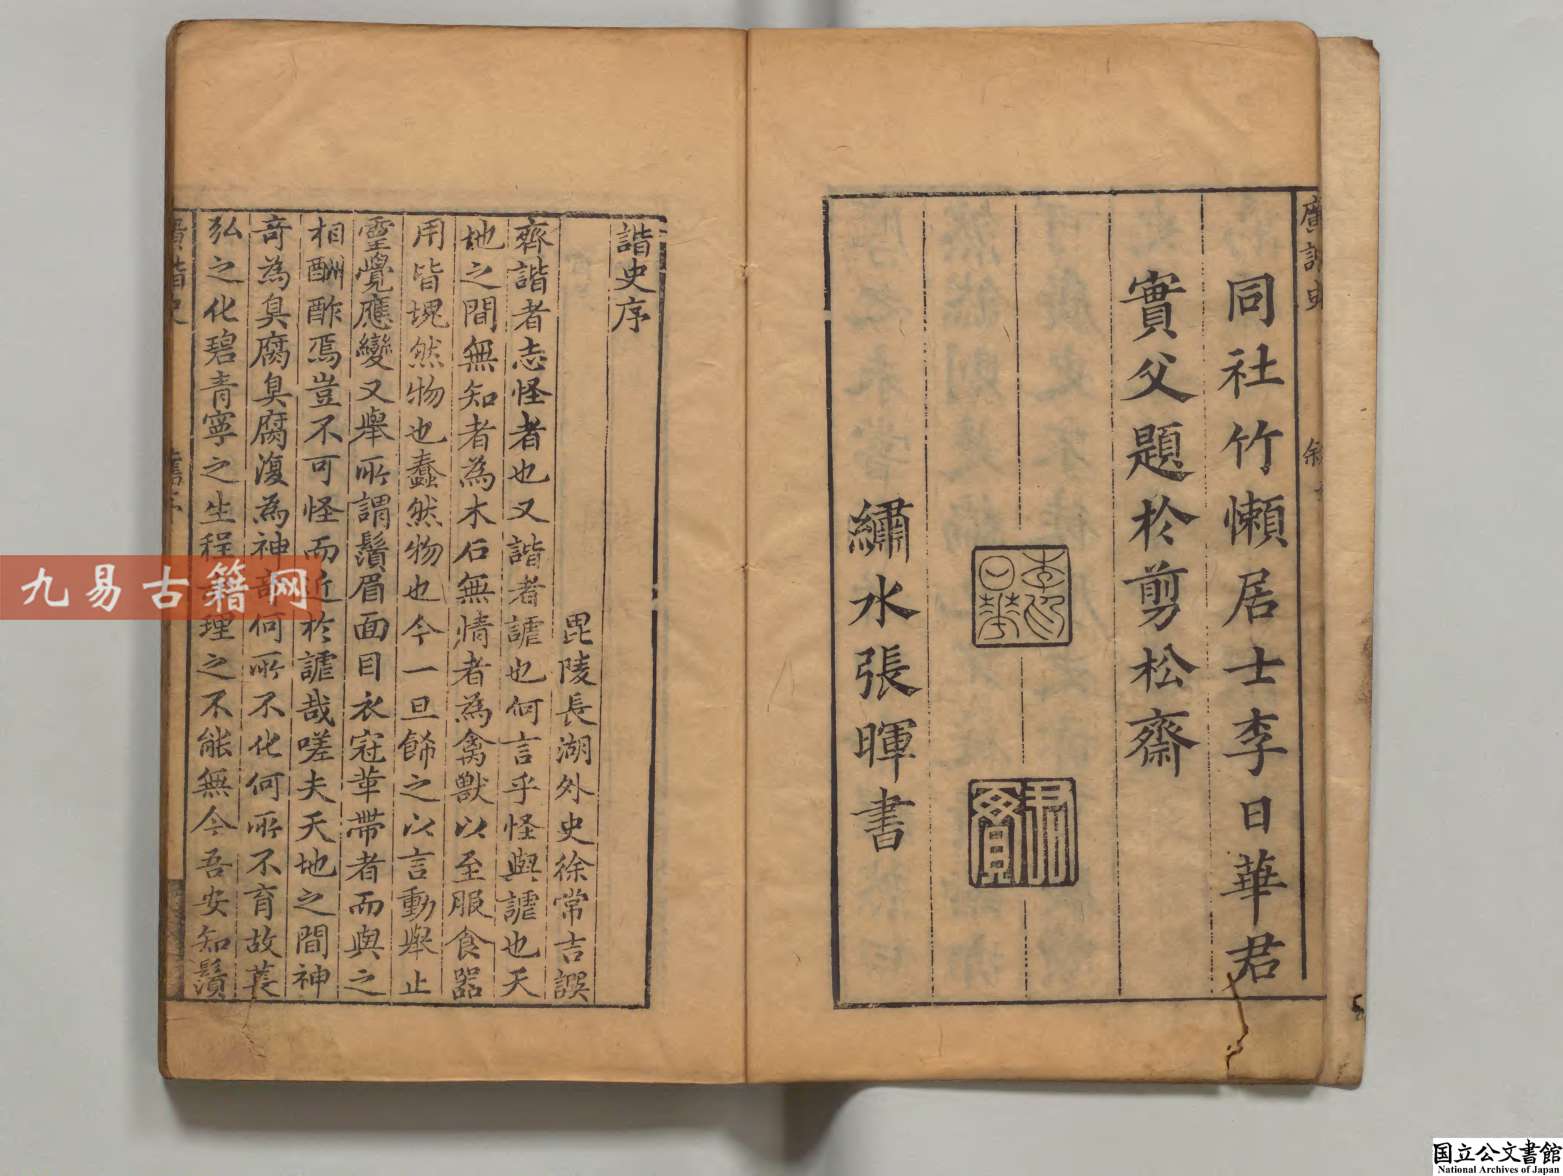 廣諧史
敘
同社竹懶居士李日華君
實父題於剪松齋
李日華印
君實
繡水張暉書
諧史序
毘陵長湖外史徐常吉譔
齊諧者志怪者也又諧者謔也何言乎怪與謔也天
地之間無知者為木石無情者為禽獸以至服食器
用皆塊然物也蠢然物也今一旦飾之以言動舉止
靈覺應變又舉所謂鬚眉面目衣冠革帶者而與之
相酬酢焉豈不可怪而近於謔哉嗟夫天地之間神
奇為臭腐臭腐復為神奇何所不化何所不育故萇
弘之化碧青寧之生程理之不能無今吾安知鬚
廣諧史
舊序
九易古籍网
国立公文書館
National Archives of Japan